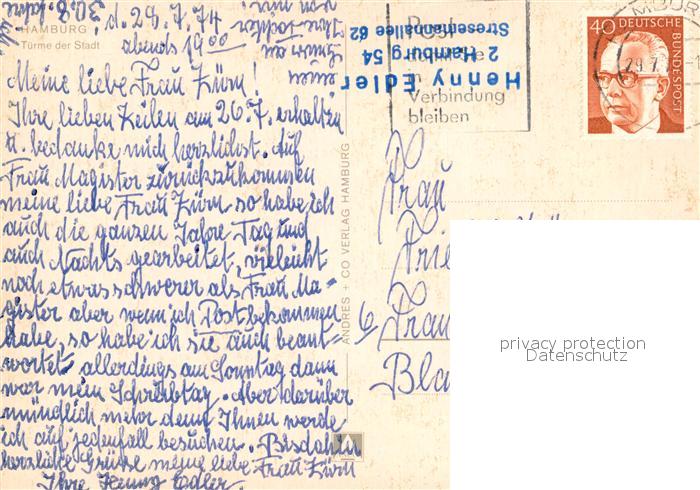 HAMBURG
Türme der Stadt
d. 28.7.74
abends 19 00
Meine liebe Frau Zürn!
Ihre lieben Zeilen am 26.7. erhalten
u. bedanke mich herzlichst. Auf
Frau Magister zurückzukommen
meine liebe Frau Zürn so habe ich
auch die ganzen Jahre Tag und
auch Nachts gearbeitet, vieleicht
noch etwas schwerer als Frau Ma=
gister aber wenn ich Post bekommen
habe, so habe ich sie auch beant=
wortet allerdings am Sonntag dann
war mein Schreibtag. Aber darüber
mündlich mehr denn Ihnen werde
ich auf jedenfall besuchen. Bisdahin
herzliche Grüsse meine liebe Frau Zürn
Ihre Henny Edler.
30.8.
einen
ANDRES + CO VERLAG HAMBURG
Henny Edler
2 Hamburg 54
Stresemannallee 62
Post
in
Verbindung
bleiben
40 DEUTSCHE
BUNDESPOST
29.7.
Frau
6
Frau
privacy protection
Datenschutz